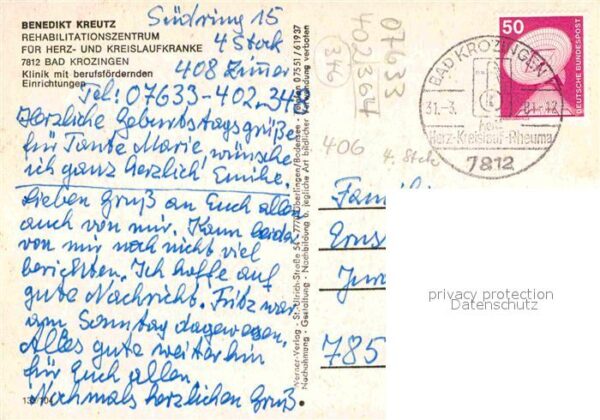 BENEDIKT KREUTZ
REHABILITATIONSZENTRUM
FÜR HERZ- UND KREISLAUFKRANKE
7812 BAD KROZINGEN
Klinik mit berufsfördernden
Einrichtungen
Südring 15
4 Stock
408 Zimmer
Tel: 07633-402-346
Herzliche Geburtstagsgrüße
für Tante Marie wünsche
ich ganz herzlich! Emilie.
Lieben Gruß an Euch allen
auch von mir. Kann leider
von mir noch nicht viel
berichten. Ich hoffe auf
gute Nachricht. Fritz war
am Sonntag dagewesen.
Alles gute weiterhin
für Euch allen
Nochmals herzlichen Gruß
Werner-Verlag · St.-Ulrich-Straße 54 · 777 Überlingen/Bodensee · Telefon 07551/61937
Nachahmung · Gestaltung · Nachbildung u. jegliche Art bildlicher Verwendung verboten
07633
402364
346
406
4. Stck
50
DEUTSCHE BUNDESPOST
BAD KROZINGEN
31.-3.
81.-12
Herz-Kreislauf-Rheuma
7812
Famili
Erns
785
privacy protection
Datenschutz